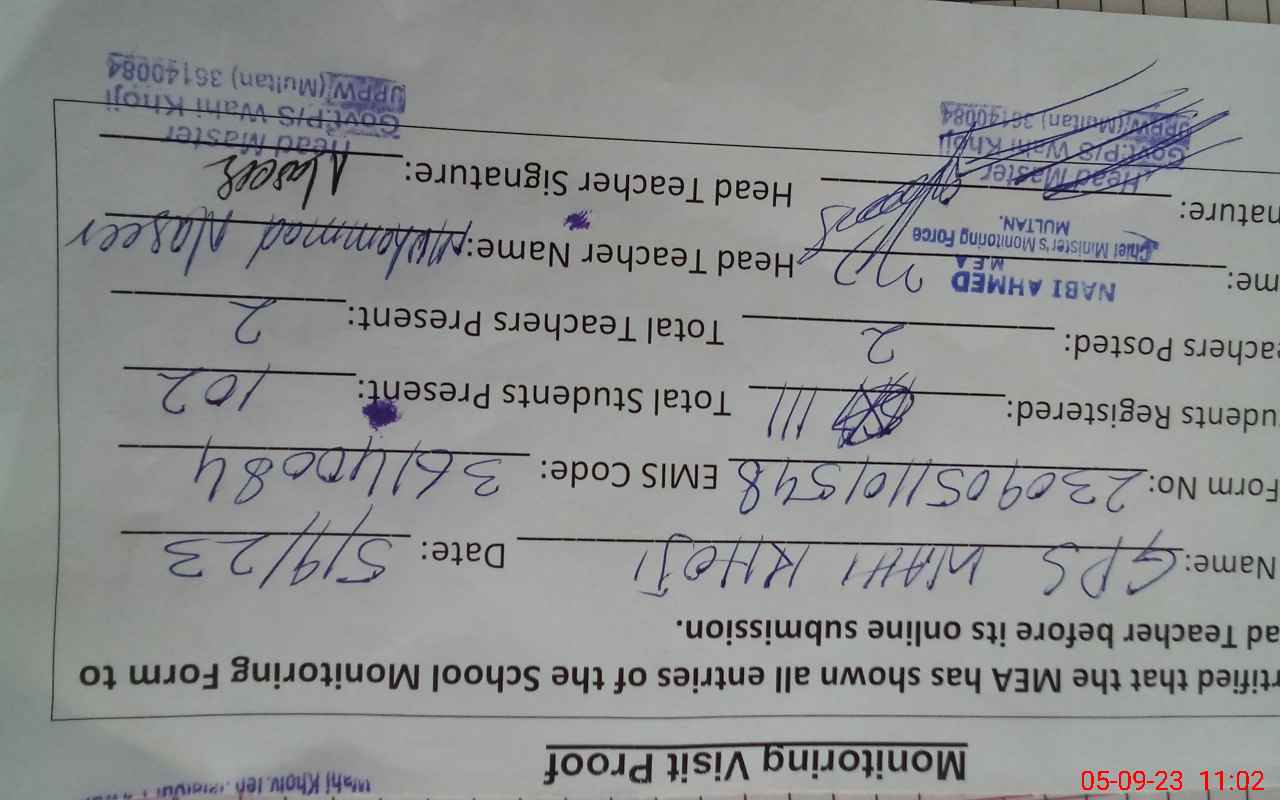 Monitoring Visit Proof
rtified that the MEA has shown all entries of the School Monitoring Form to
ad Teacher before its online submission.
Name: GPS WAHI KHOJI Date: 5/9/23
Form No: 2309051101548 EMIS Code: 36140084
udents Registered: 111 Total Students Present: 102
eachers Posted: 2 Total Teachers Present: 2
me: NABI AHMED Head Teacher Name: Muhammad Naseer
M.E.A
Chief Minister's Monitoring Force
MULTAN.
nature: Head Teacher Signature: Naseer
Head Master
Govt: P/S Wahi Khoji
UPPW (Multan) 36140084
Head Master
Govt: P/S Wahi Khoji
UPPW (Multan) 36140084
05-09-23 11:02